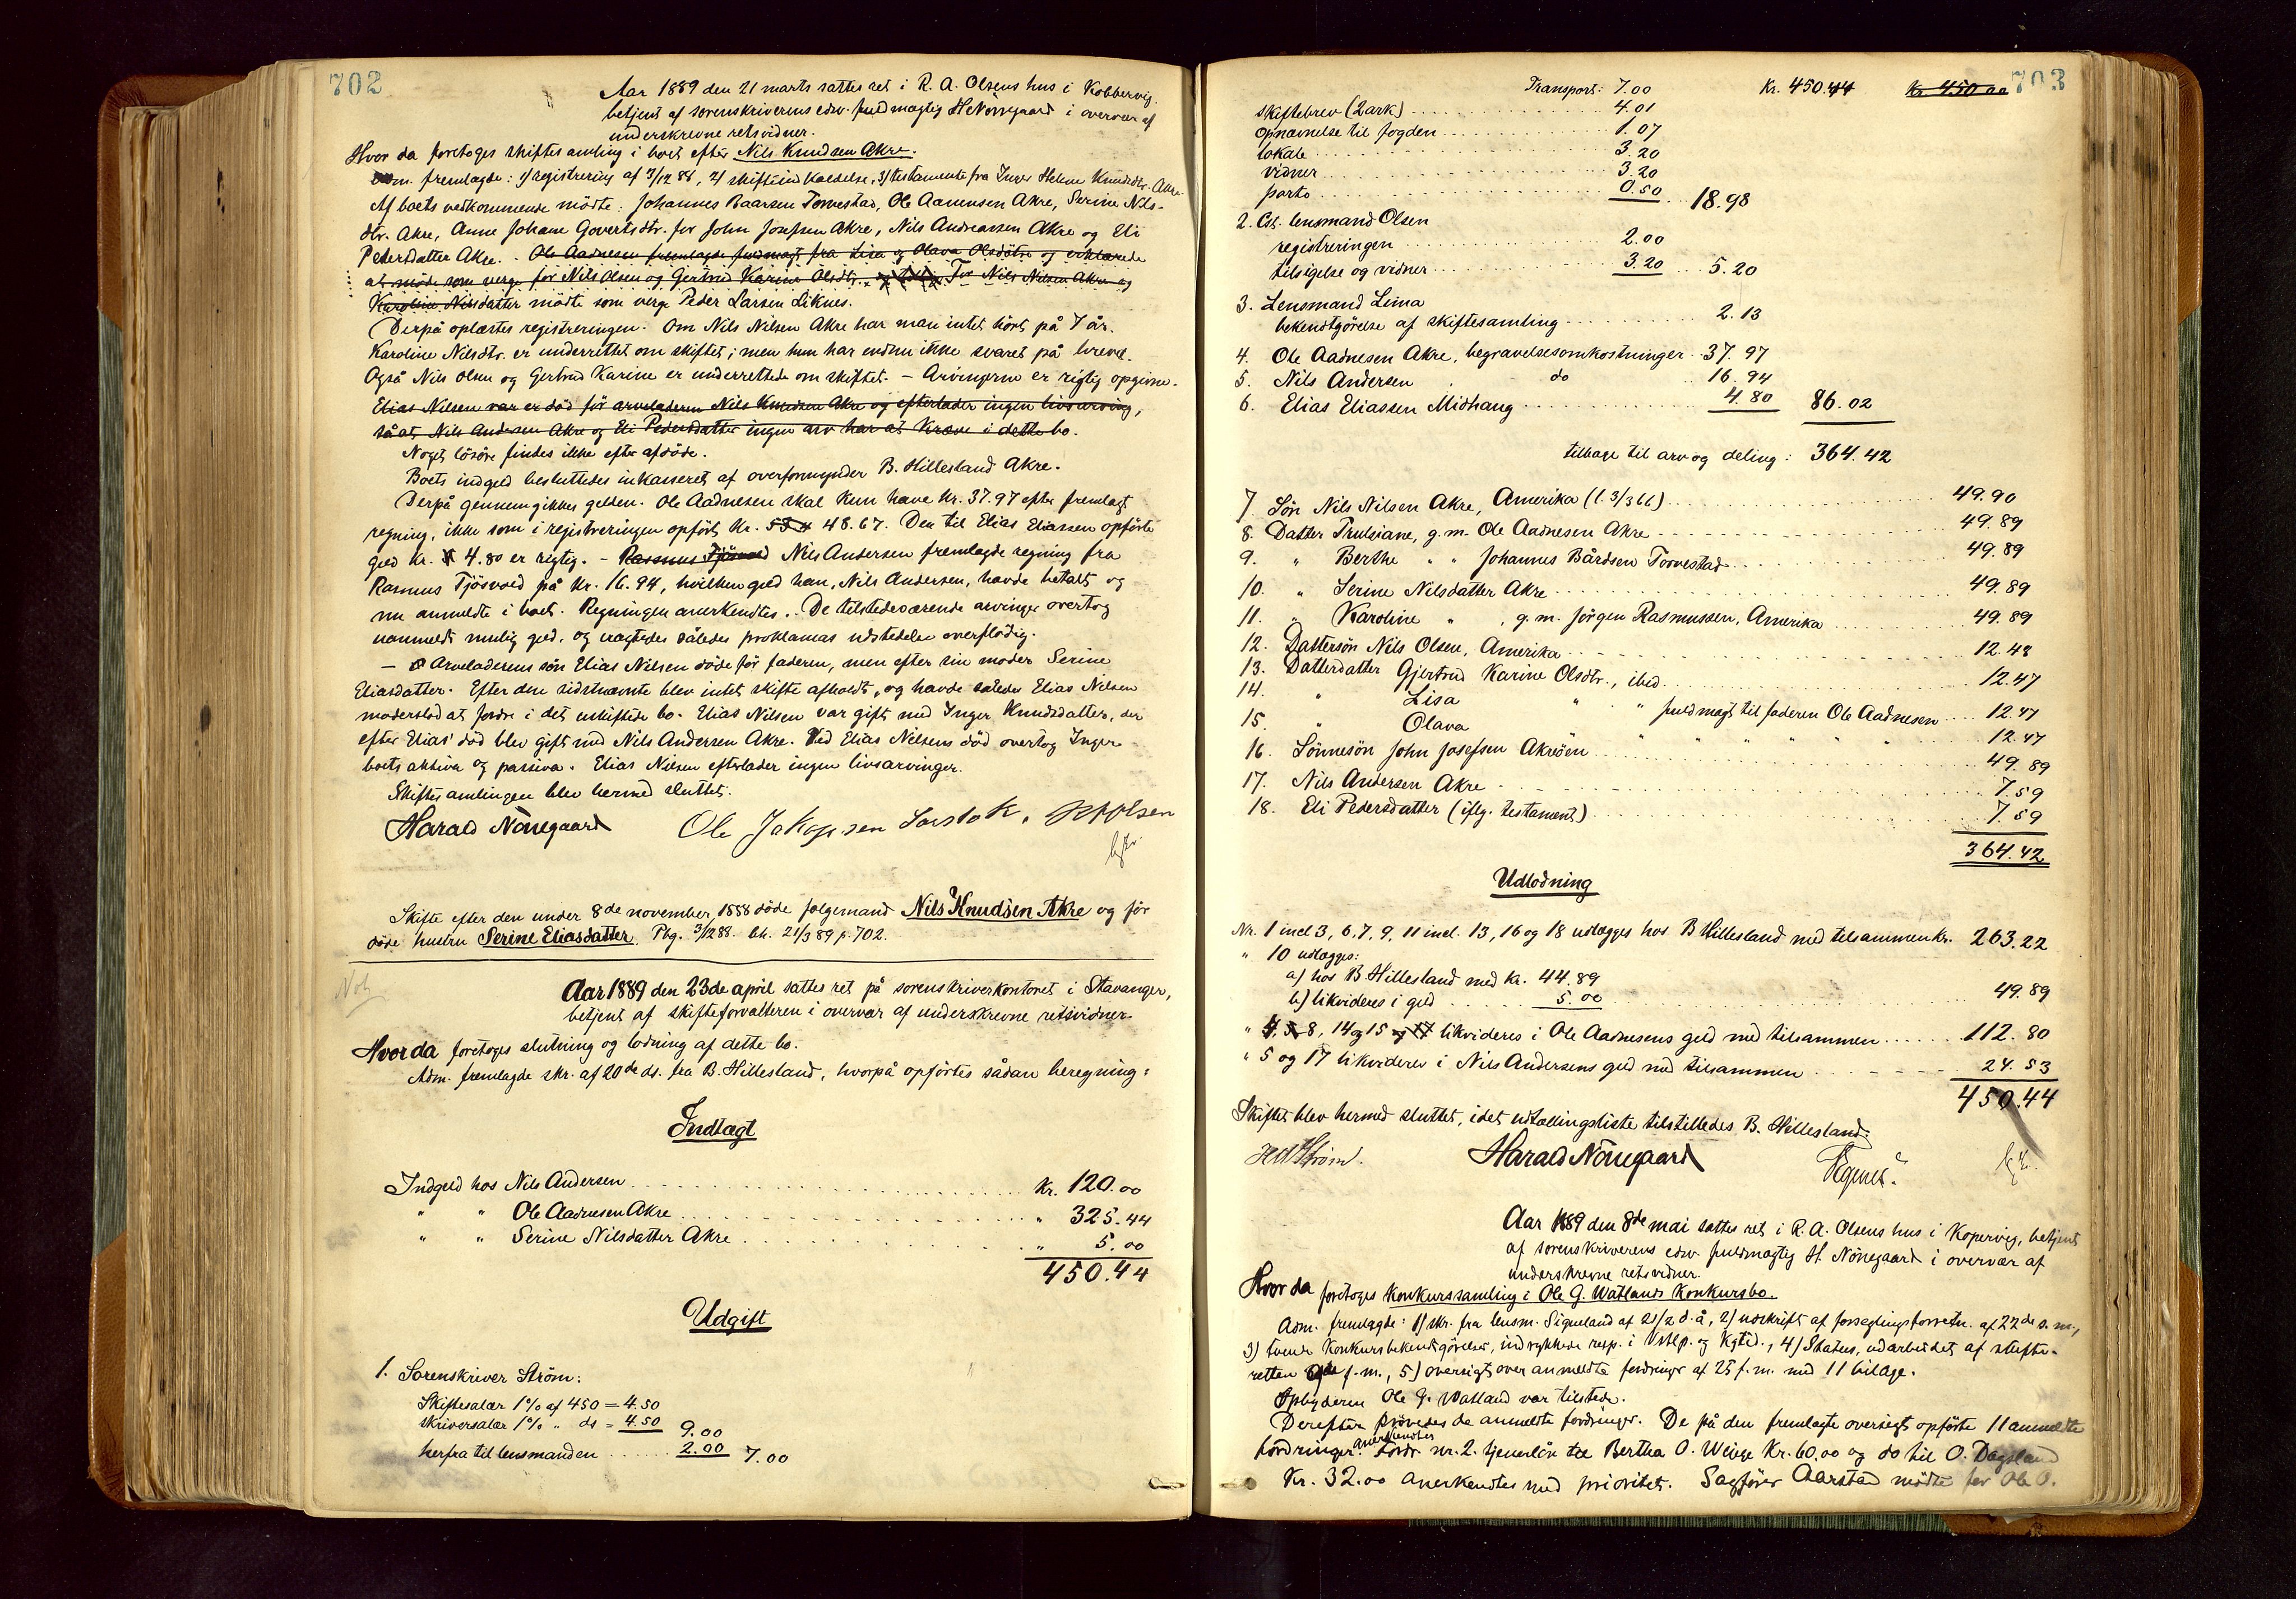 702
Aar 1889 den 21 marts sattes ret i R. A. Olsens hus i Kobbervig
betjent af sorenskriverens edsv. fuldmægtig H Nönegaard i overvær af
underskrevne retsvidner.
Hvor da foretoges skiftesamling i boet efter Nils Knudsen Akre.
Adm. fremlagde: 1) registrering af 3/12 88, 2) skifteindkaldelse, 3) testamente fra Inger Helene Knudsdtr. Akre.
Af boets vedkommende mödte: Johannes Baarsen Torvestad, Ole Aanensen Akre, Serine Nils-
dtr. Akre, Anne Johane Govertsdtr. for John Josefsen Akre, Nils Andreassen Akre og Eli
Pedersdatter Akre. - Ole Aadnesen fremlagde fuldmagt fra Lisa og Olava Olsdötre og erklærede
at möde som verge for Nils Olsen og Gertrud Karine Olsdtr. For Nils Nilsen Akre og
Karoline Nilsdatter mödte som verge Peder Larsen Liknes.
Derpå oplæstes registreringen. Om Nils Nilsen Akre har man intet hört på 7 år.
Karoline Nilsdtr. er underrettet om skiftet; men hun har endnu ikke svaret på brevet.
Også Nils Olsen og Gertrud Karine er underrettede om skiftet. - Arvingerne er rigtig opgivne.
Elias Nilsen var er död för arveladeren Nils Knudsen Akre og efterlader ingen livsarving,
så at Nils Andersen Akre og Eli Pedersdatter ingen arv har at kræve i dette bo.
Noget lösöre findes ikke efter afdöde.
Boets indgæld besluttedes inkasseret af overformynder B. Hillesland Akre.
Derpå gennemgikkes gælden. Ole Aadnesen skal kun have kr. 37.97 efter fremlagt
regning, ikke som i registreringen opfört kr. 48.67. Den til Elias Eliassen opförte
gæld kr. 4.80 er rigtig. - Rasmus Tjösvold Nils Andersen fremlagde regning fra
Rasmus Tjösvold på kr. 16.94, hvilken gæld han, Nils Andersen, havde betalt og
nu anmeldte i boet. Regningen anerkendtes. De tilstedeværende arvinger overtog
uanmeldt mulig gæld, og eragtedes således proklamas udstedelse overflödig.
- Arveladerens sön Elias Nilsen döde för faderen, men efter sin moder Serine
Eliasdatter. Efter den sidstnævnte blev intet skifte afholdt, og havde således Elias Nilsen
moderslod at fordre i det uskiftede bo. Elias Nilsen var gift med Inger Knudsdatter, der
efter Elias' död blev gift med Nils Andersen Akre. Ved Elias Nilsens död overtog Inger
boets aktiva og passiva. Elias Nilsen efterlader ingen livsarvinger.
Skiftesamlingen blev hermed sluttet.
Harald Nönegaard Ole Jakopsen Olsen
Skifte efter den under 8de november 1888 döde folgemand Nils Knudsen Akre og för
döde hustru Serine Eliasdatter. Pkg. 3/12 88. bh. 21/3 89 p. 702.
Not.
Aar 1889 den 23de april sattes ret på sorenskriverkontoret i Stavanger,
betjent af skifteforvalteren i overvær af underskrevne retsvidner.
Hvor da foretoges slutning og lodning af dette bo.
Adm. fremlagde skr. af 20de ds. fra B. Hillesland, hvorpå opförtes sådan beregning:
Indtægt
Indgæld hos Nils Andersen kr. 120.00
" " Ole Aadnesen Akre " 325.44
" " Serine Nilsdatter Akre " 5.00
450.44
Udgift
1. Sorenskriver Ström:
Skiftesalær 1% af 450 = 4.50
skriversalær 1% " ds = 4.50 9.00
herfra til lensmanden 2.00 7.00
703
Transport: 7.00 Kr. 450.44 Kr. 450 00
skiftebrev (2 ark) 4.01
opnævnelse til fogden 1.07
lokale 3.20
vidner 3.20
porto 0.50 18.98
2. Cst. lensmand Olsen
registreringen 2.00
tilsigelse og vidner 3.20 5.20
3. Lensmand Lima
bekendtgörelse af skiftesamling 2.13
4. Ole Aadnesen Akre, begravelsesomkostninger 37.97
5. Nils Andersen do 16.94
6. Elias Eliassen Midhaug 4.80 86.02
tilbage til arv og deling: 364.42
7. Sön Nils Nilsen Akre, Amerika (f. 3/3 66) 49.90
8. Datter Trulsiane, g. m. Ole Aadnesen Akre 49.89
9. " Berthe " " Johannes Bårdsen Torvestad 49.89
10. " Serine Nilsdatter Akre 49.89
11. " Karoline " , g. m. Jörgen Rasmussen, Amerika 49.89
12. Dattersön Nils Olsen, Amerika 12.48
13. Datterdatter Gjertrud Karine Olsdtr., ibid. 12.47
14. " Lisa " " fuldmagt til faderen Ole Aadnesen 12.47
15. " Olava " " " " " " 12.47
16. Sönnesön John Josefsen Akreöen 49.89
17. Nils Andersen Akre 7.59
18. Eli Pedersdatter (iflg. testament) 7.59
364.42
Udlodning
Nr. 1 incl 3, 6, 7, 9, 11 incl. 13, 16 og 18 udlægges hos B Hillesland med tilsammen kr. 263.22
" 10 udlægges:
a) hos B Hillesland med kr. 44.89
b) likvideres i gæld 5.00 49.89
" 4, 8, 14 og 15 og 17 likvideres i Ole Aadnesens gæld med tilsammen 112.80
" 5 og 17 likvideres i Nils Andersens gæld med tilsammen 24.53
450.44
Skiftet blev hermed sluttet, idet udtællingsliste tilstilledes B. Hillesland.
Ström. Harald Nönegaard
Aar 1889 den 8de mai sattes ret i R. A. Olsens hus i Kopervig, betjent
af sorenskriverens edsv. fuldmægtig H. Nönegaard i overvær af
underskrevne retsvidner.
Hvor da foretoges konkurssamling i Ole G. Watlands konkursbo.
Adm. fremlagde: 1) skr. fra lensm. Sigueland af 21/2 d. å, 2) udskrift af forseglingsforretn. af 22de s. m.,
3) tvende konkursbekendtgörelser, indrykkede resp. i Vstlp. og Kgtid., 4) Status, udarbeidet af skifte-
retten f. m., 5) oversigt over anmeldte fordringer af 25 f. m. med 11 bilage.
Opbyderen Ole G. Watland var tilstede.
Derefter prövedes de anmeldte fordringer. De på den fremlagte oversigt opförte 11 anmeldte
fordringer anerkendtes. Fordr. nr. 2. tjenerlön til Bertha O. Kr. 60.00 og do til O. Dagsland
Kr. 32.00 anerkendtes med prioritet. Sagförer Aarstad mödte for Ole O.